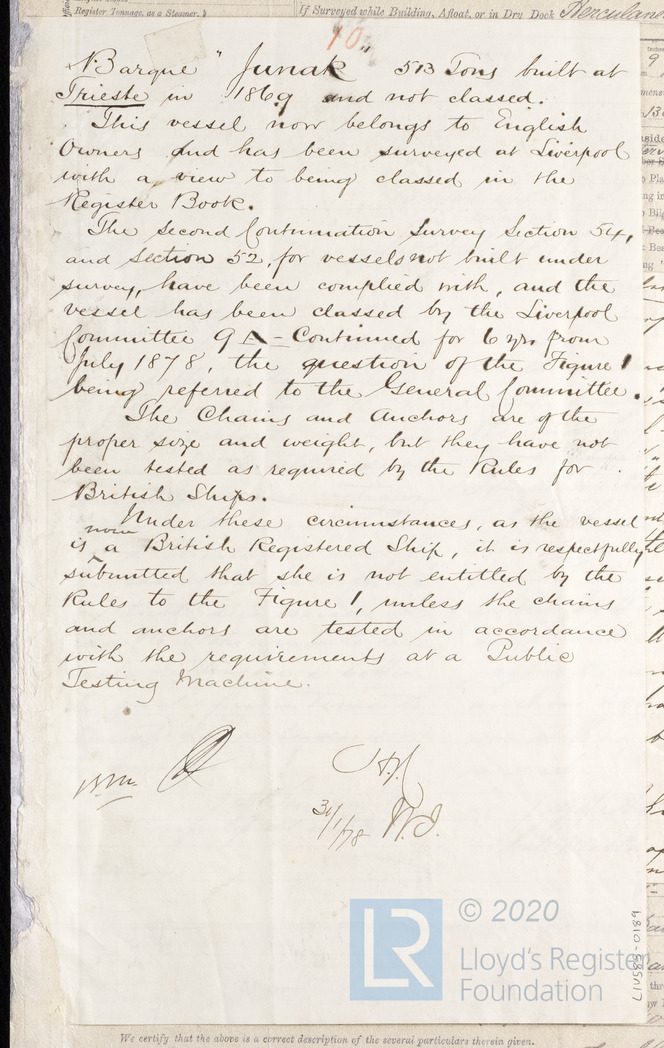 Register Tonnage, as a Steamer.
If Surveyed while Building, Afloat, or in Dry Dock Herculan
10
Barque "Junak" 513 Tons built at
Trieste in 1869 and not classed.
This vessel now belongs to English
Owners and has been surveyed at Liverpool
with a view to being classed in the
Register Book.
The Second Continuation Survey Section 54,
and Section 52, for vessels not built under
survey, have been complied with, and the
vessel has been classed by the Liverpool
Committee 9 A - Continued for 6 yrs from
July 1878, the question of the Figure 1
being referred to the General Committee.
The Chains and Anchors are of the
proper size and weight, but they have not
been tested as required by the Rules for
British Ships.
Under these circumstances, as the vessel
is now a British Registered Ship, it is respectfully
submitted that she is not entitled by the
Rules to the Figure 1, unless the chains
and anchors are tested in accordance
with the requirements at a Public
Testing Machine.
LR
© 2020
Lloyd's Register
Foundation
LIV583-0189
We certify that the above is a correct description of the several particulars therein given.